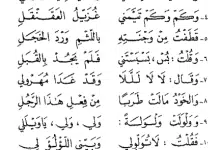 ٤- وَكَمْ وَكَمْ تَيَّمَنِي غُزَيِّلُ العَقَنْقَلِ
٥- قَطَفْتُ مِنْ وَجْنَتِهِ بِاللَّثْمِ وَرْدَ الخَجَلِ
٦- وَقُلْتُ : بُسْ ، بَسْبَسْتَنِي فَلَمْ يَجُدْ بِالقُبَلِ
٧- وَقَالَ : لَا لَا لَلَا وَقَدْ غَدَا مُهَرْوِلِي
٨- وَالخُودُ مَالَتْ طَرَبًا مِنْ فِعْلِ هَذَا الرَّجُلِ
٩- وَوَلْوَلَتْ وَلْوَلَةً : وَلِي ، وَلِي ، يَاوَيْلَلِي
١٠- فَقُلْتُ : لَا تُوَلْوِلِي وَبَيِّنِي اللُّؤْلُؤَ لِي